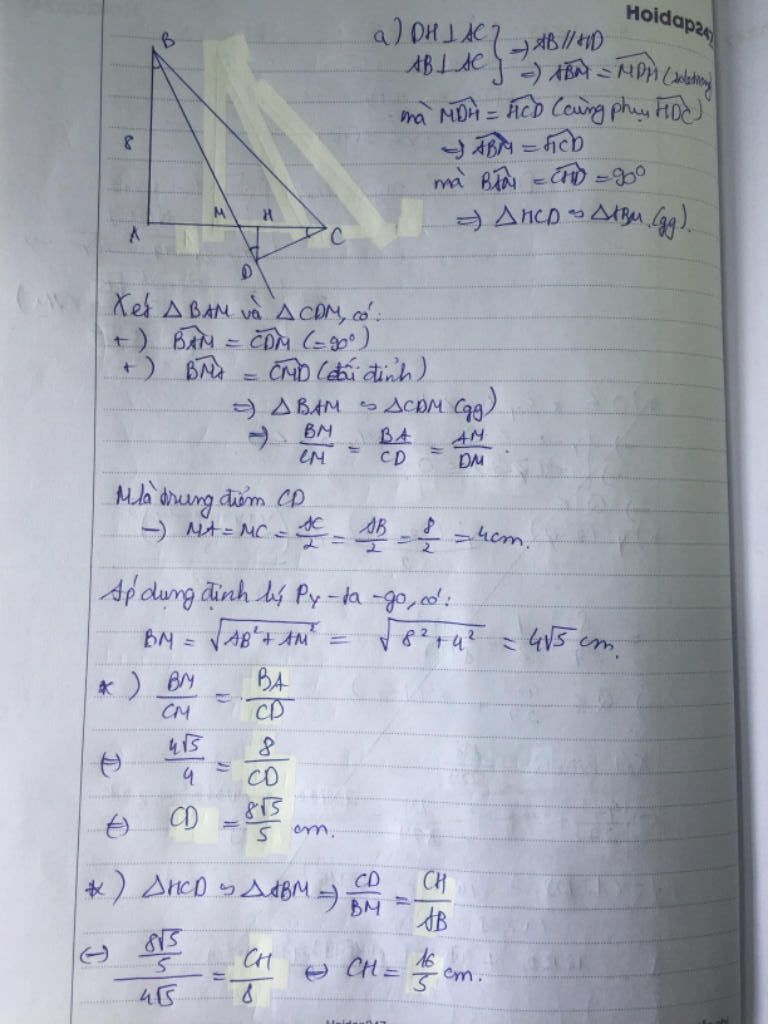 Hoidap247
a) DH ⊥ AC
AB ⊥ AC } ⇒ AB // HD
⇒ ABM^ = MDH^ (soletrong)
mà MDH^ = HCD^ (cùng phụ HDC^)
⇒ ABM^ = HCD^
mà BAM^ = CHD^ = 90°
⇒ △HCD ∽ △ABM (gg).
B
8
A M H C
D
Xét △BAM và △CDM, có:
+) BAM^ = CDM^ (=90°)
+) BMA^ = CMD^ (đối đỉnh)
⇒ △BAM ∽ △CDM (gg)
⇒ BM/CM = BA/CD = AM/DM.
M là trung điểm CD
→ MA = MC = AC/2 = AB/2 = 8/2 = 4cm.
Áp dụng định lý Py-ta-go, có:
BM = √(AB² + AM²) = √(8² + 4²) = 4√5 cm.
*) BM/CM = BA/CD
⇔ 4√5/4 = 8/CD
⇔ CD = 8√5/5 cm.
*) △HCD ∽ △ABM ⇒ CD/BM = CH/AB
⇔ (8√5/5)/(4√5) = CH/8 ⇔ CH = 16/5 cm.
Hoidap247